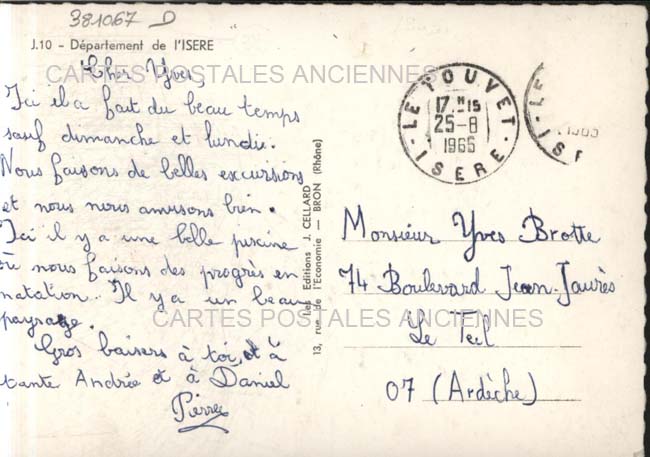 381067 D
J.10 - Département de l'ISERE
CARTES POSTALES ANCIENNES
Cher Yves,
Ici il a fait du beau temps
sauf dimanche et lundi.
Nous faisons de belles excursions
et nous nous amusons bien.
Ici il y a une belle piscine
où nous faisons des progrès en
natation. Il y a un beau
paysage.
Gros baisers à toi, et à
tante Andrée et à Daniel
Pierre
Les Editions J. CELLARD
13, rue de l'Economie — BRON (Rhône)
LE TOUVET
17 H 15
25-8
1965
ISERE
LE
1965
IS
Monsieur Yves Brotte
74 Boulevard Jean-Jaurès
Le Teil
07 (Ardèche)
CARTES POSTALES ANCIENNES